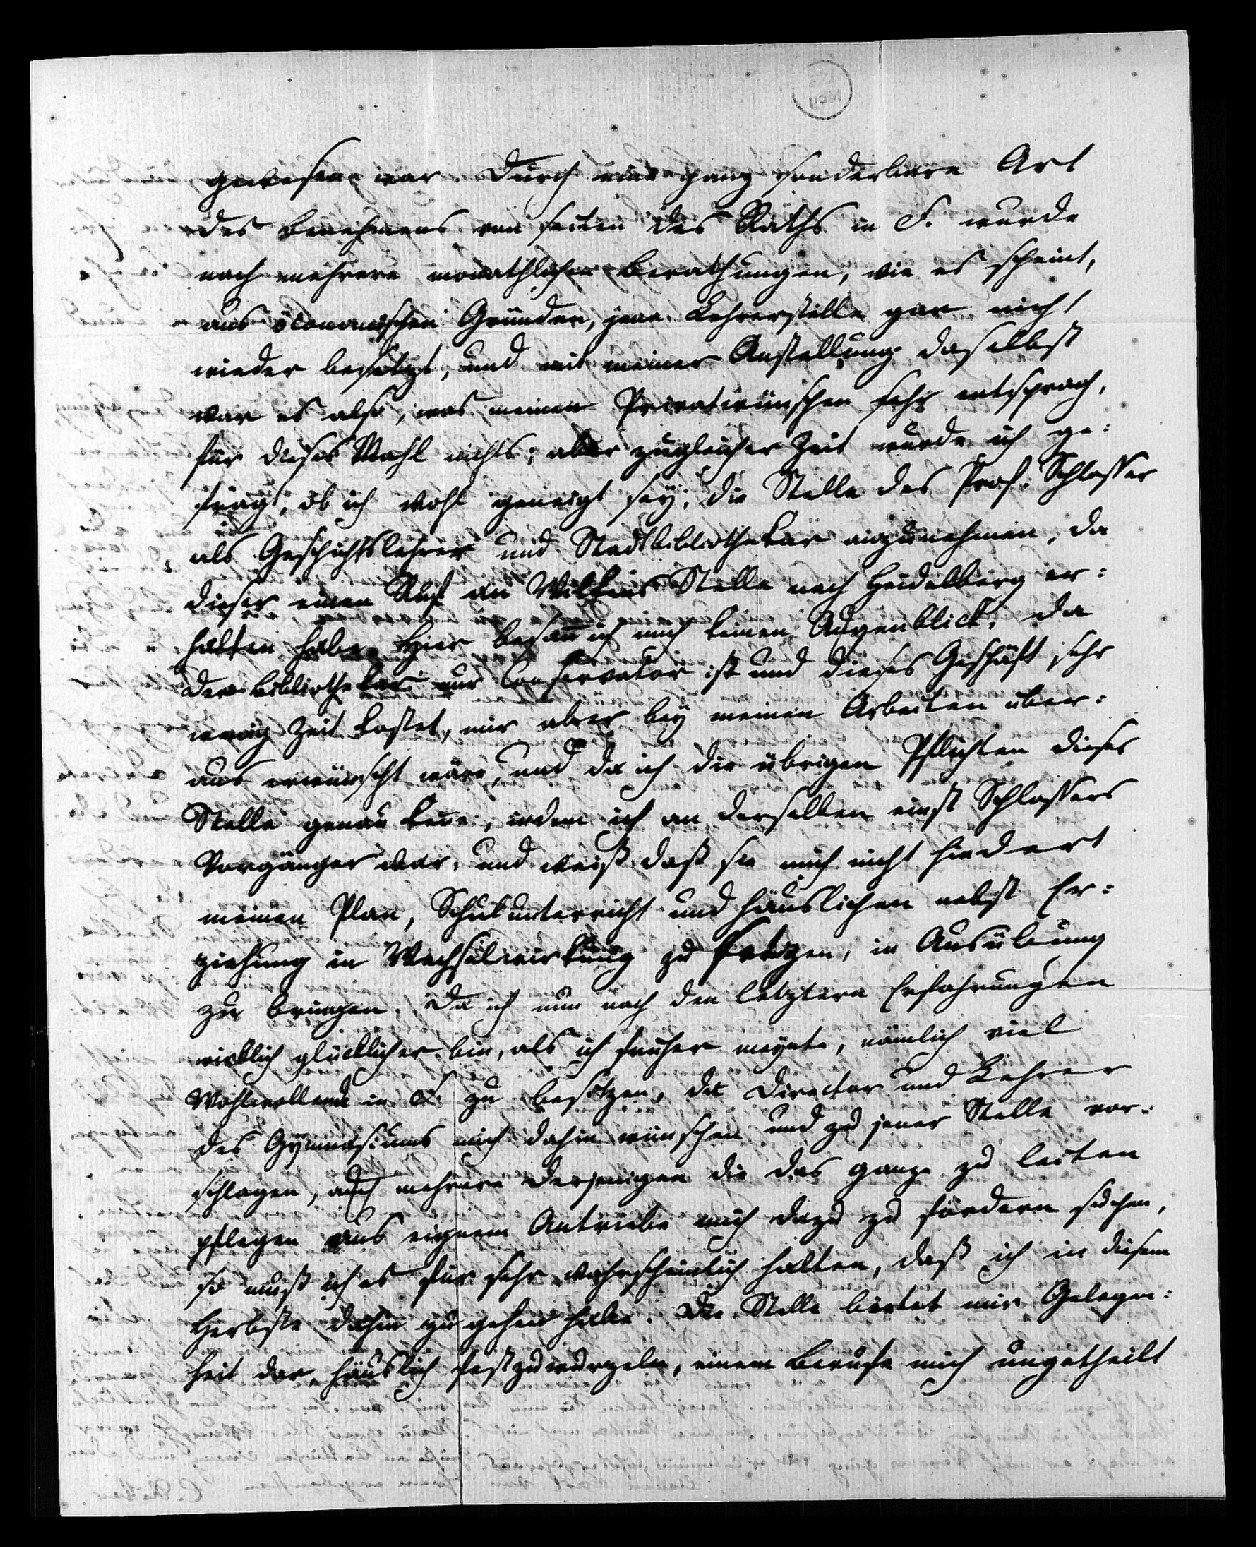 gewesen war. Durch eine ganz sonderbare Art
des Benehmens von seiten des Raths in F. wurde
nach mehrere monathlichen Berathungen, wie es scheint,
aus öconomischen Gründen, jene Lehrerstelle gar nicht
wieder besetzt, und mit meiner Anstellung daselbst
war es also, was meinen Privatwünschen sehr entsprach,
für dieses Mahl nichts; aber zugleicher Zeit wurde ich ge=
fragt, ob ich wohl geneigt sey, die Stelle des Prof. Schlosser
als Geschichtslehrer und Stadtbibliothekar anzunehmen, da
dieser einen Ruf an Wilkens Stelle nach Heidelberg er=
halten habe. Hier besann ich mich keinen Augenblick, da
der Bibliothekar nur Conservator ist und dieses Geschäft sehr
wenig Zeit kostet, mir aber bey meinen Arbeiten über=
aus erwünscht wäre, und da ich die übrigen Pflichten dieser
Stelle genau kenne, indem ich an derselben einst Schlossers
Vorgänger war, und weiß daß sie mich nicht hindert
meinen Plan, Schulunterricht und häuslichen nebst Er=
ziehung in Wechselwirkung zu setzen, in Ausübung
zu bringen. Da ich nun nach den letztern Erfahrungen
wirklich glücklicher bin, als ich früher meynte, nämlich viel
Wohlwollende in F. zu besitzen, da Director und Lehrer
des Gymnasiums mich dahin wünschen und zu jener Stelle vor=
schlagen, auch mehrere derjenigen die das ganze zu leiten
pflegen aus eignem Antriebe mich dazu zu fördern suchen,
so muß ich es für sehr wahrscheinlich halten, daß ich in diesem
Herbste dahin zu gehen habe. Die Stelle bietet mir Gelegen=
heit dar, häuslich festzuwurzeln, einem Berufe mich ungetheilt